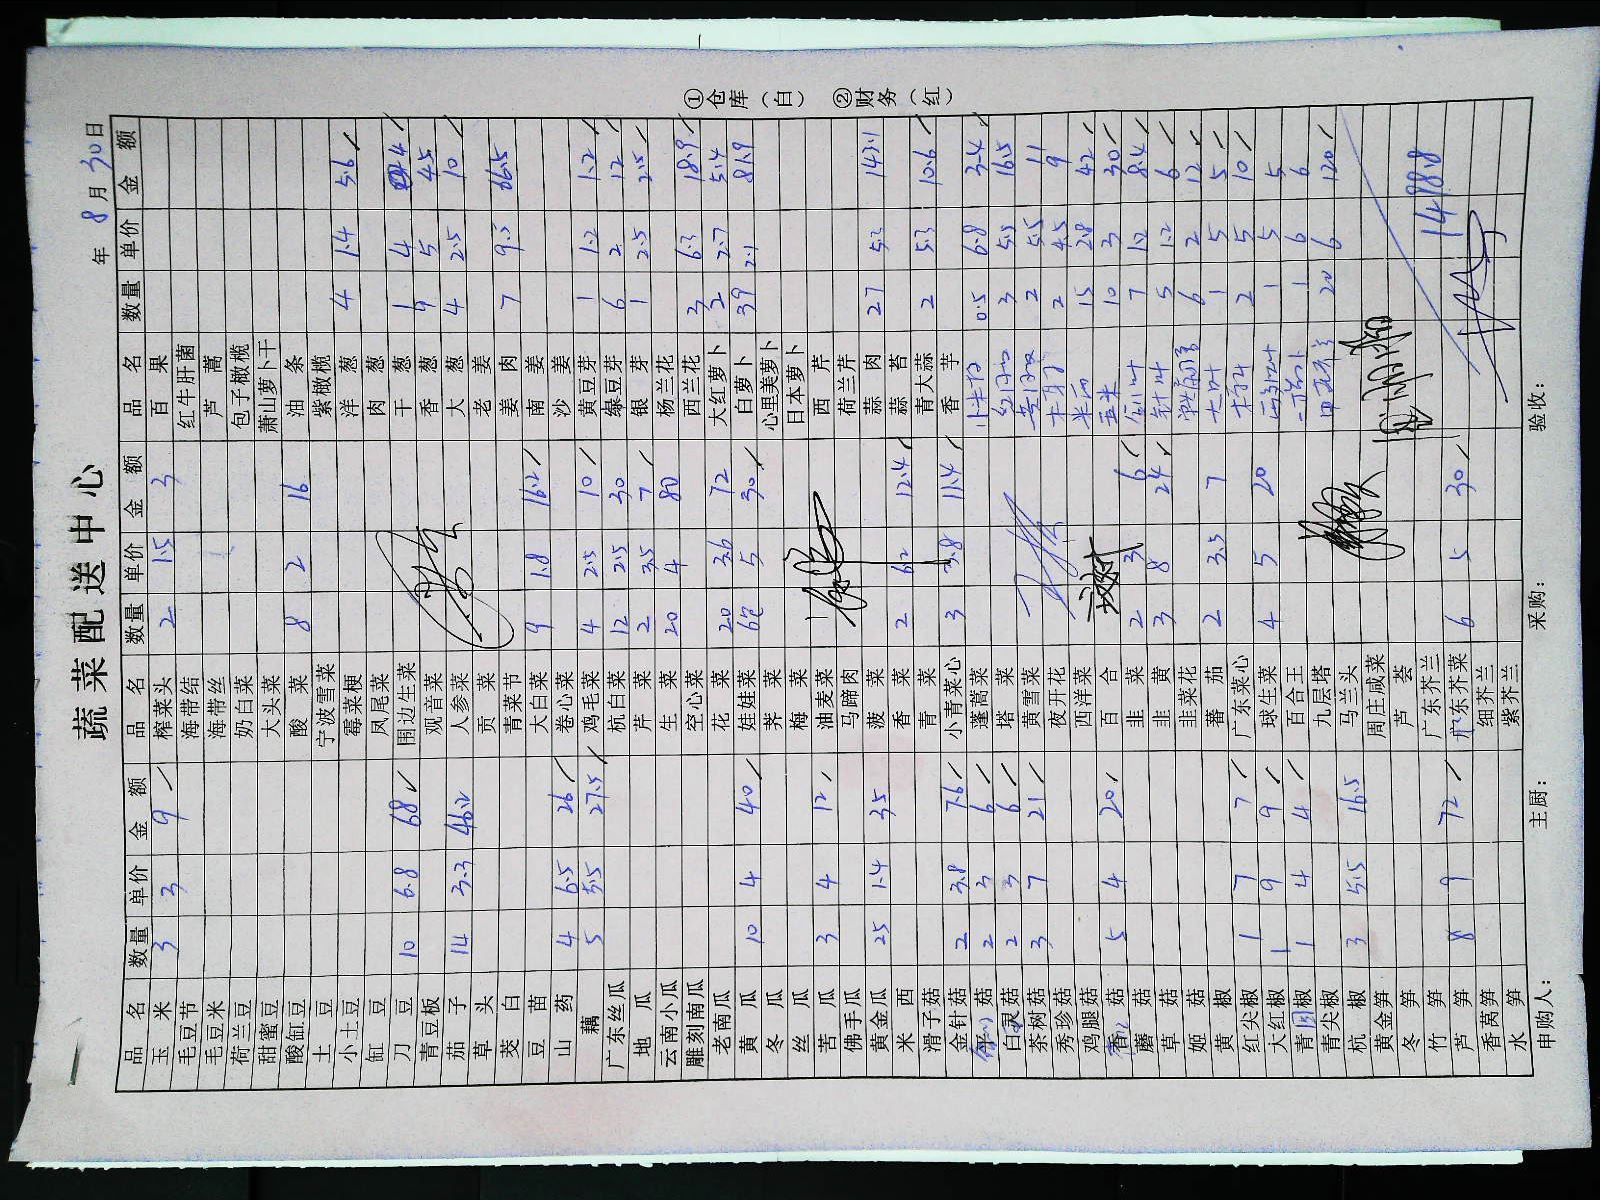 蔬菜配送中心
年 8 月 30 日
品名 数量 单价 金额 品名 数量 单价 金额 品名 数量 单价 金额
玉米 3 3 9 榨菜头 2 1.5 3 百果
毛豆节 海带结 红牛肝菌
毛豆米 海带丝 芦蒿
荷兰豆 奶白菜 包子橄榄
甜蜜豆 大头菜 萧山萝卜干
酸缸豆 酸菜 8 2 16 油条
土豆 宁波雪菜 紫橄榄
小土豆 霉菜梗 洋葱 4 1.4 5.6
缸豆 凤尾菜 肉葱
刀豆 10 6.8 68 围边生菜 干葱 1 4 4
青豆板 观音菜 香葱 9 5 45
茄子 14 3.3 46.2 人参菜 大葱 4 2.5 10
草头 贡菜 老姜
茭白 青菜节 姜肉 7 9.5 66.5
豆苗 大白菜 9 1.8 16.2 南姜
山药 4 6.5 26 卷心菜 沙姜
藕 5 5.5 27.5 鸡毛菜 4 2.5 10 黄豆芽 1 1.2 1.2
广东丝瓜 杭白菜 12 2.5 30 绿豆芽 6 2 12
地瓜 芹菜 2 3.5 7 银芽 1 2.5 2.5
云南小瓜 生菜 20 4 80 杨兰花
雕刻南瓜 空心菜 西兰花 3 6.3 18.9
老南瓜 花菜 20 3.6 72 大红萝卜 2 2.7 5.4
黄瓜 10 4 40 娃娃菜 6包 5 30 白萝卜 39 2.1 81.9
冬瓜 荠菜 心里美萝卜
丝瓜 梅菜 日本萝卜
苦瓜 3 4 12 油麦菜 西芹
佛手瓜 马蹄肉 荷兰芹
黄金瓜 25 1.4 35 菠菜 蒜肉 27 5.3 143.1
米西 香菜 2 6.2 12.4 蒜苔
滑子菇 青菜 青大蒜 2 5.3 10.6
金针菇 2 3.8 7.6 小青菜心 3 3.8 11.4 香芋 0.5 6.8 3.4
菇 2 3 6 蓬蒿菜 3 5.5 16.5
白灵菇 2 3 6 塔菜 2 5.5 11
茶树菇 3 7 21 黄雪菜 2 4.5 9
秀珍菇 夜开花 15 2.8 42
鸡腿菇 西洋菜 玉米 10 3 30
香菇 5 4 20 百合 7 1.2 8.4
蘑菇 韭菜 2 3 6 5 1.2 6
草菇 韭黄 3 8 24 6 2 12
姬菇 韭菜花 1 5 5
黄椒 蕃茄 2 3.5 7 2 5 10
红尖椒 1 7 7 广东菜心 1 5 5
大红椒 1 9 9 球生菜 4 5 20 1 6 6
青圆椒 1 4 4 百合王 20 6 120
青尖椒 九层塔
杭椒 3 5.5 16.5 马兰头
黄金笋 周庄咸菜
冬笋 芦荟
竹笋 广东芥兰 1498.8
芦笋 8 9 72 广东芥菜 6 5 30
香莴笋 细芥兰
水笋 紫芥兰
申购人： 主厨： 采购： 验收：
①仓库（白） ②财务（红）